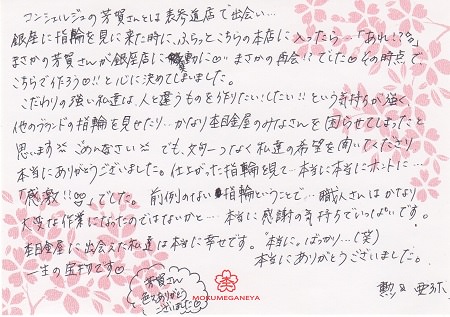 コンシェルジュの芳賀さんとは表参道店で出会い…
銀座に指輪を見に来た時に、ふらっとこちらの本店に入ったら…「あれ!?」
まさかの芳賀さんが銀座店に に♡ まさかの再会!?でした♡その時点で、
こちらで作ろう♡!!と心に決めてしまいました。
こだわりの強い私達は、人と違うものを作りたい!したい!!という気持ちが強く、
他のブランドの指輪を見せたり…かなり杢目金屋のみなさんを困らせてしまったと
思います ごめんなさい でも、文句一つなく私達の希望を聞いてくださり
本当にありがとうございました。仕上がった指輪を見て…本当に本当にホントに…
「感激!!♡」でした。前例のない指輪ということで…職人さんはかなり
大変な作業になったのではないかと…本当に感謝の気持ちでいっぱいです。
杢目金屋に出会えた私達は本当に幸せです。"本当に。ばっかり…(笑)
一生の宝物です♡ 本当にありがとうございました。
芳賀さん
色々ありがとう
ございました
MOKUMEGANEYA